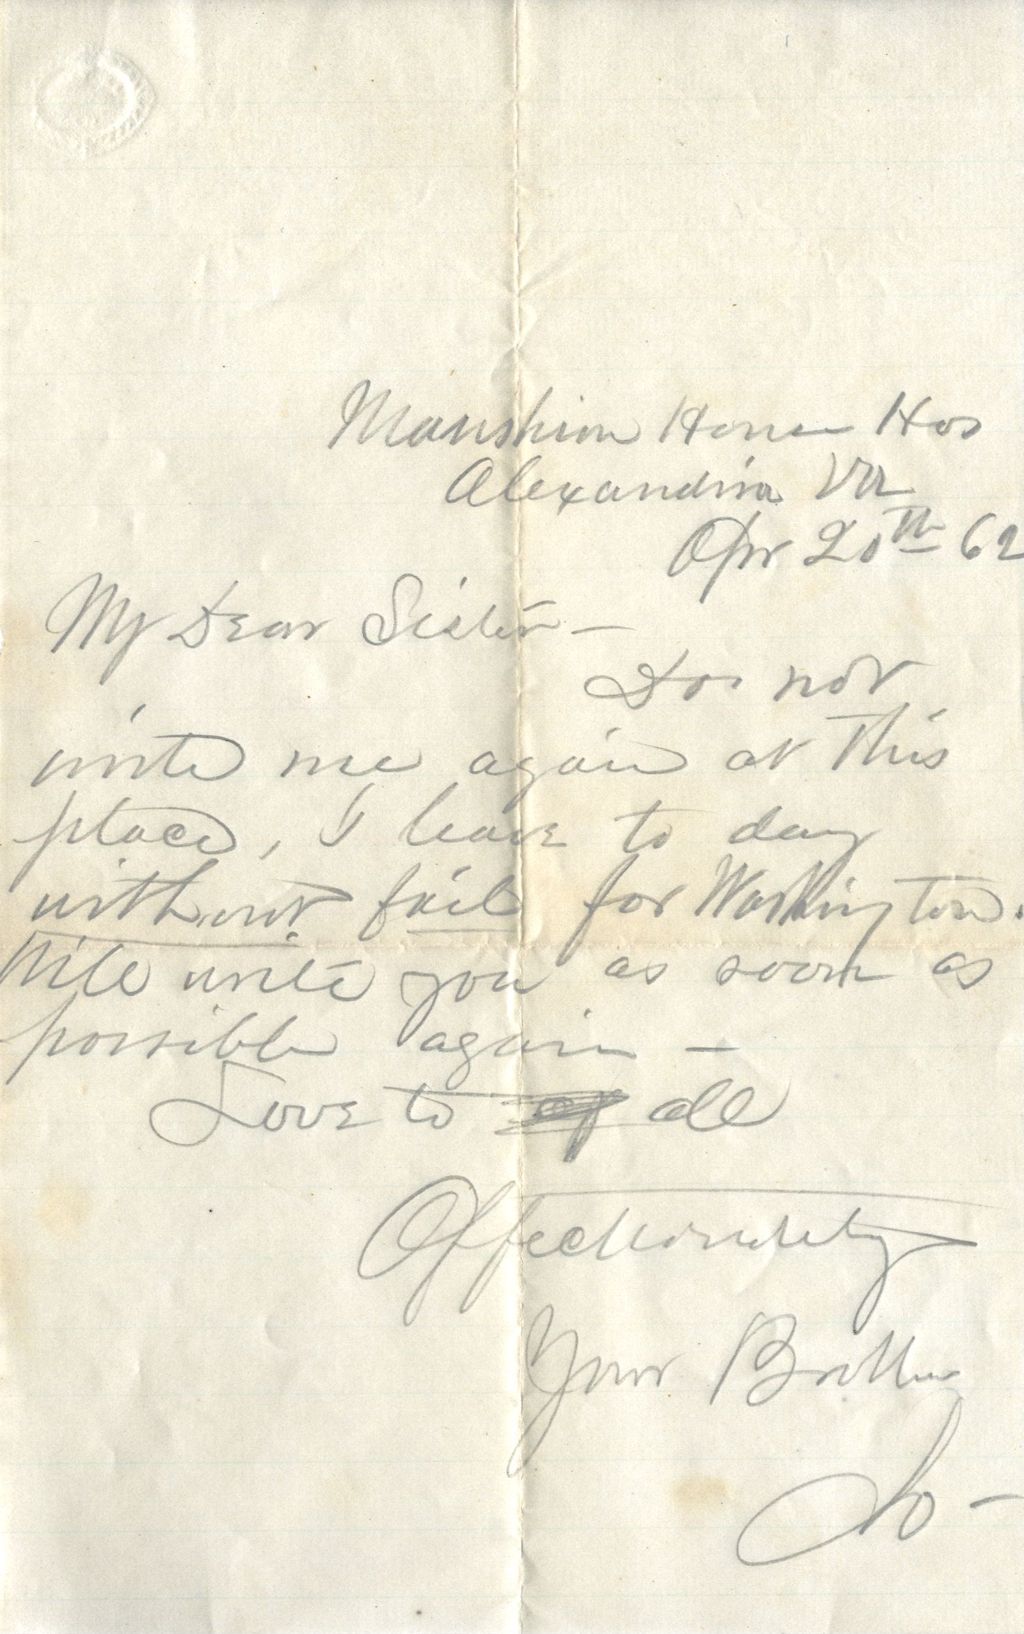 Manshion House Hos
Alexandria Va
Apr 20th 62
My Dear Sister –
Do not
write me again at this
place, I leave to day
without fail for Washington.
Will write you as soon as
possible again –
Love to all
Affectionately
Your Brother
Jo –